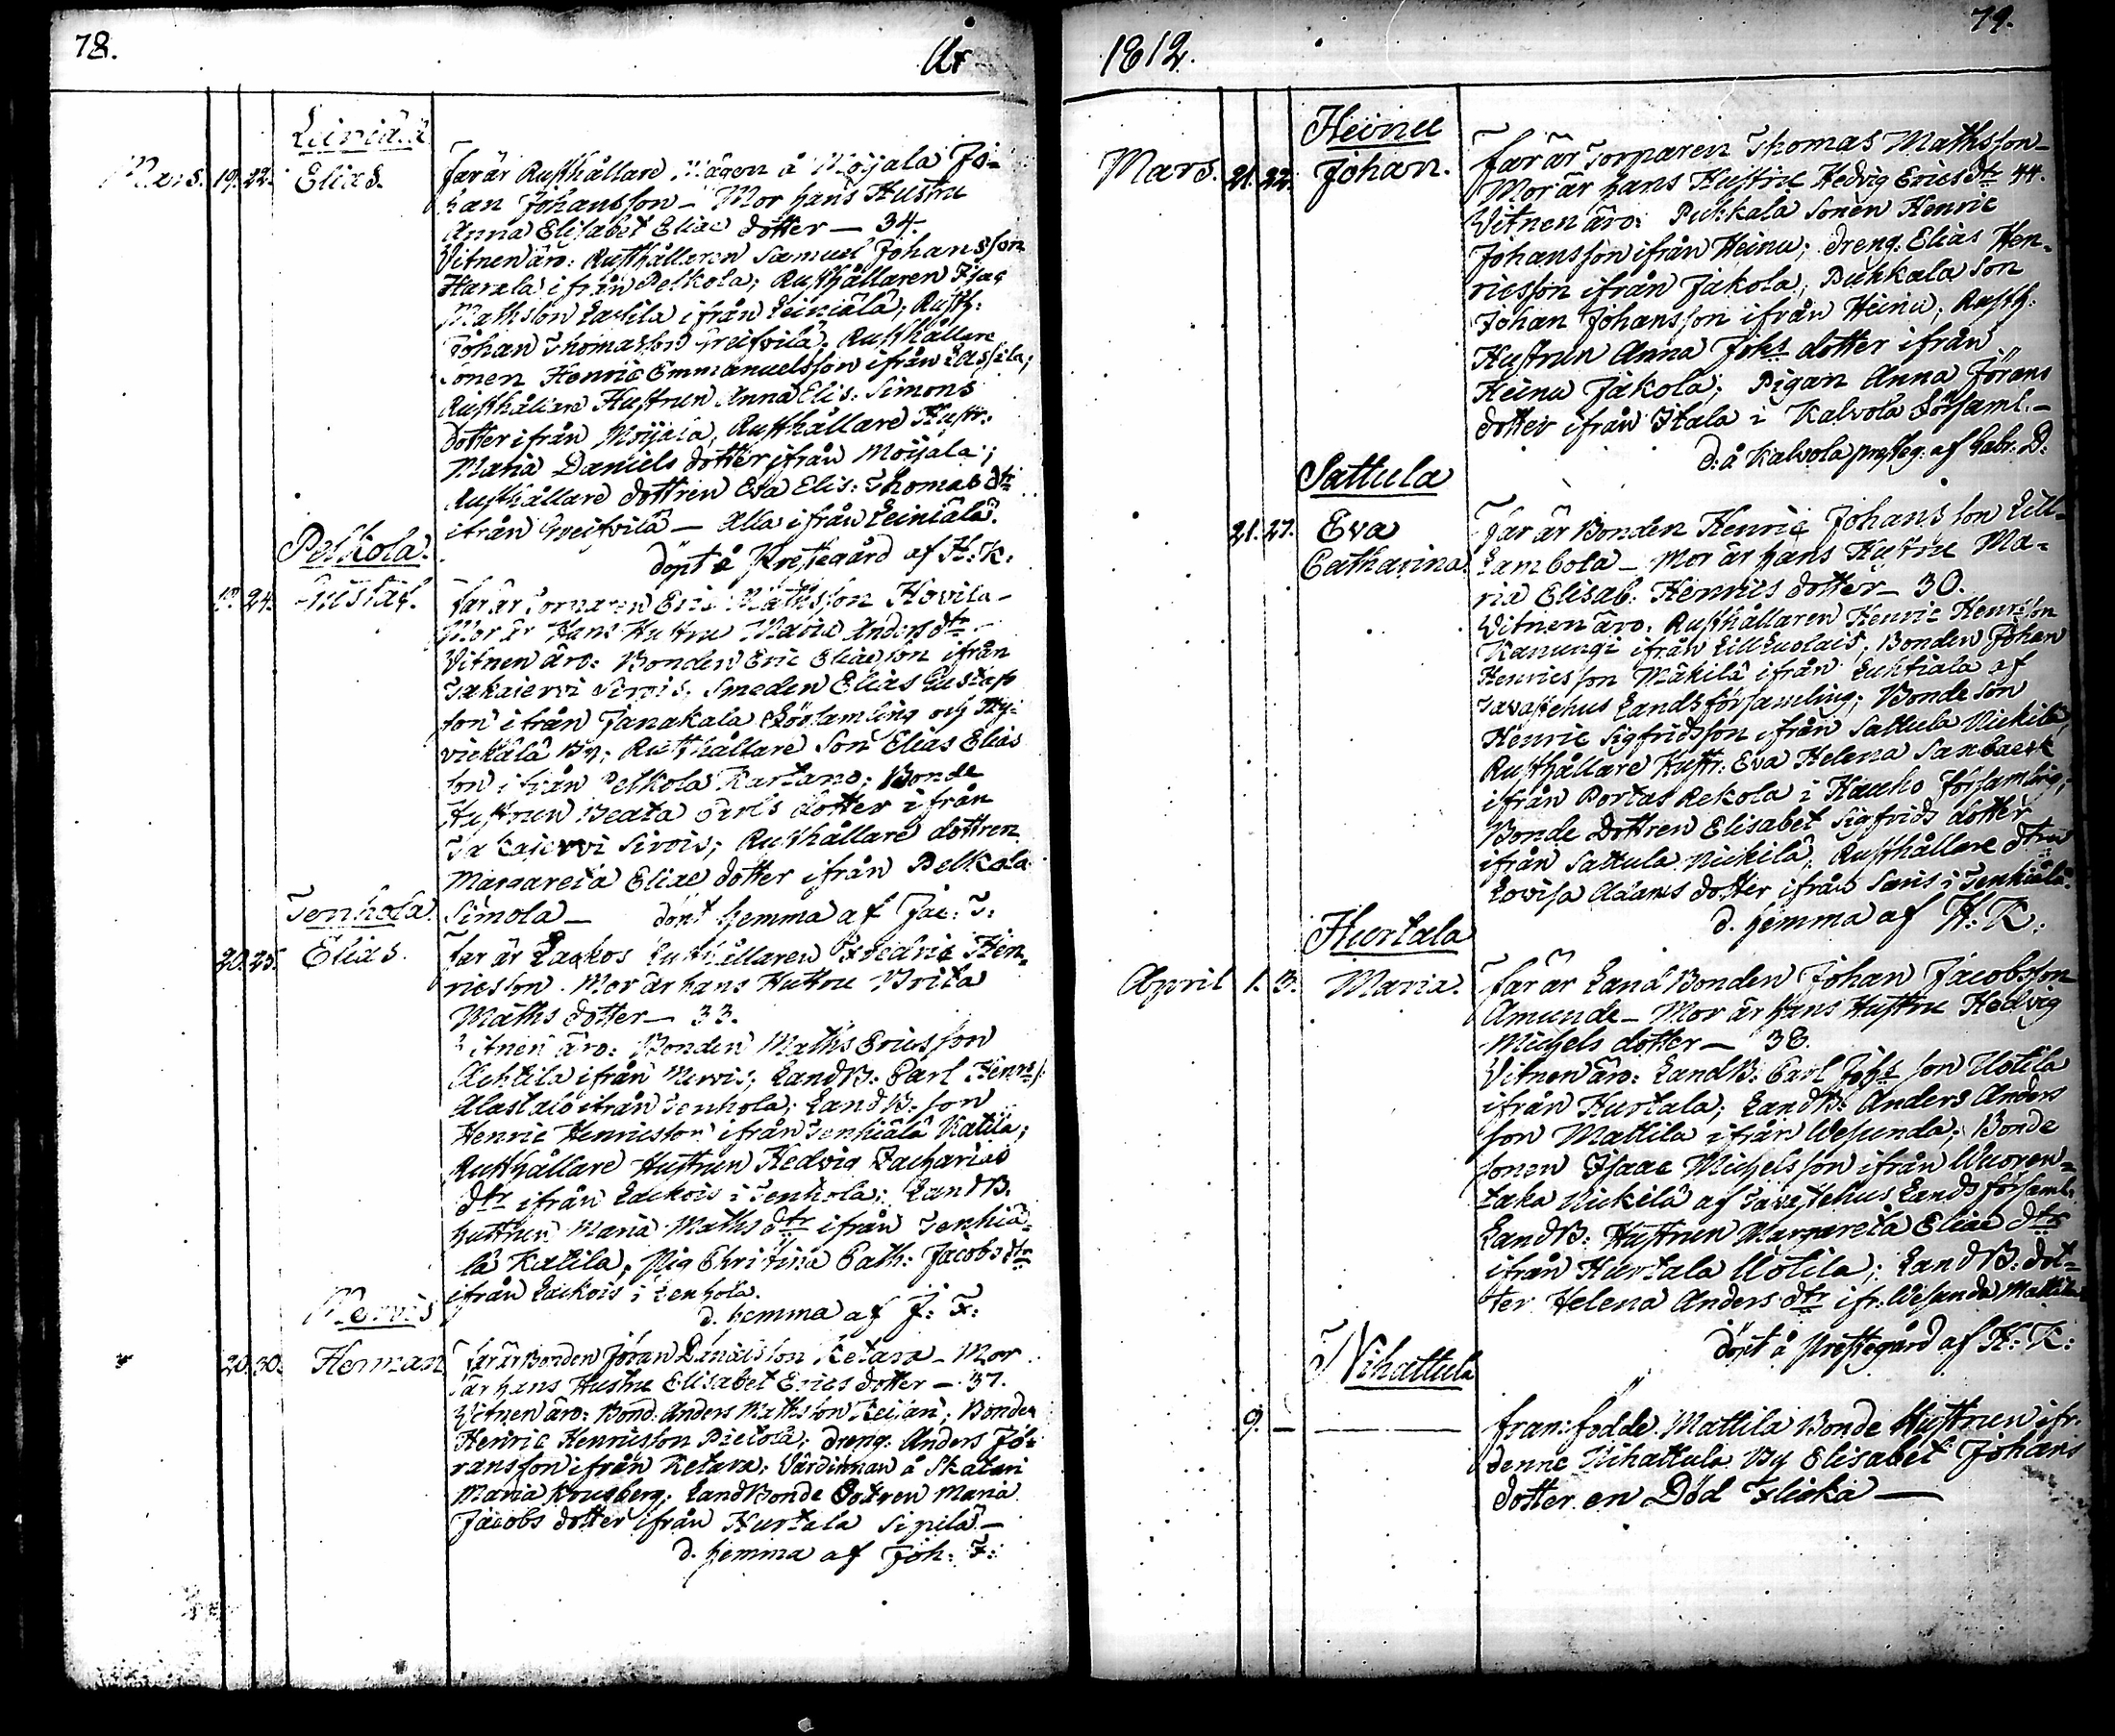 78.
År
Leiniälä
Mars. 19. 22. Elias.
Far är Rusthållare Mågen å Moijala Jo-
han Johansson - Mor hans Hustru
Anna Elisabet Eliae dotter - 34.
Vitnen äro: Rusthållaren Samuel Johansson
Harala ifrån Pelkola; Rusthållaren Isac
Mathsson Laurila ifrån Leiniälä; Rusth:
Johan Thomasson Greifvilä; Rusthållare
sonen Henric Emmanuelsson ifrån Lassila;
Rusthållare Hustrun Anna Elis: Simons
dotter ifrån Moijala; Rusthållare Hustr:
Maria Daniels dotter ifrån Moijala;
Rusthållare dottren Eva Elis: Thomas dtr
ifrån Greifvilä - Alla ifrån Leiniälä.
döpt å Prestegård af H: K:
Pelkola.
19. 24. Gustaf.
Far är Torparen Eric Mathsson Hovila -
Mor är Hans Hustru Maria Anders dtr -
Vitnen äro: Bonden Eric Eliaeson ifrån
Takajervi Sirois; Smeden Elias Gustafs
son ifrån Janakala Församling och Hy-
vickälä By; Rusthållare Son Elias Elias
son ifrån Pelkola Kartano; Bonde
Hustrun Beata Carls dotter ifrån
Takajervi Sirois; Rusthållare dottren
Margareta Eliae dotter ifrån Pelkola
Simola - döpt hemma af Jac: T:
Tenhola.
20. 25. Elias.
Far är Lackos Rusthållaren Fredric Hen-
ricsson. Mor är hans Hustru Brita
Maths dotter - 33.
Vitnen äro: Bonden Maths Ericsson
Ochtila ifrån Mervis; LandB: Carl Henrs:
Alastalo ifrån Tenhola; LandB: son
Henric Henricsson ifrån Tenhiälä Katila;
Rusthållare Hustrun Hedvig Zacharias
dtr ifrån Lackois i Tenhola; LandB.
hustrun Maria Maths dtr ifrån Tenhiä-
lä Katila, Pig Christina Cath: Jacobs dtr
ifrån Lackois i Tenhola.
d. hemma af J: F:
Mervis
20. 30. Herman
Far är Bonden Jöran Danielsson Ketara - Mor
är hans Hustru Elisabet Erics dotter - 37.
Vitnen äro: Bond. Anders Mathsson Keijari; Bonden
Henric Henricsson Pietola; dreng: Anders Jö-
ransson ifrån Ketara; Värdinnan å Skatari
Maria Krusberg; LandBonde Dottren Maria
Jacobs dotter ifrån Hurtala Sipilä -
d. hemma af Joh: F:
1812.
79.
Heinu
Mars. 21. 22. Johan.
Far är Torparen Thomas Mathsson -
Mor är hans Hustru Hedvig Erics dtr 44.
Vitnen äro: Puhkala sonen Henric
Johansson ifrån Heinu; dreng: Elias Hen-
ricsson ifrån Jakola; Puhkala son
Johan Johansson ifrån Heinu; Rusth:
Hustrun Anna Johs dotter ifrån
Heinu Jakola; Pigan Anna Jörans
dotter ifrån Itala i Kalvola Församl: -
d: å Kalvola presteg. af Gabr: D:
Sattula
21. 27. Eva
Catharina.
Far är Bonden Henric Johansson Lill-
Lambola - Mor är hans Hustru Ma-
ria Elisab: Henrics dotter - 30.
Vitnen äro; Rusthållaren Henric Henrsson
Kanungi ifrån LillLuolais; Bonden Johan
Henricsson Mäkilä ifrån Luhtiala af
Tavastehus Landsförsamling; Bonde Son
Henric Sigfridsson ifrån Sattula Nickilä;
Rusthållare Hustr: Eva Helena Sanbaeck
ifrån Portas Rekola i Hauho församling;
Bonde Dottren Elisabet Sigfrids dotter
ifrån Sattula Nickilä; Rusthållare dtren
Lovisa Adams dotter ifrån Saris i Tenhiälä.
d. hemma af H: K:
Hurtala
April 1. 3. Maria.
Far är LandBonden Johan Jacobsson
Amunde - Mor är hans Hustru Hedvig
Michels dotter - 38.
Vitnen äro: LandB: Carl Johs son Uotila
ifrån Hurtala; LandB: Anders Anders
son Mattila ifrån Wesunda; Bonde
sonen Isaac Michelsson ifrån Wuoren-
taka Nickilä af Tavastehus Landsförsaml:
LandB: Hustrun Margareta Eliae dtr
ifrån Hurtala Uotila; LandB: dot-
ter Helena Anders dtr ifr: Wesunda Mattila
döpt å Prestegård af H: K:
Nihattula
9. -
framfödde Mattila Bonde Hustrun ifr.
denne Nihattula By Elisabet Johans
dotter en Död Flicka -